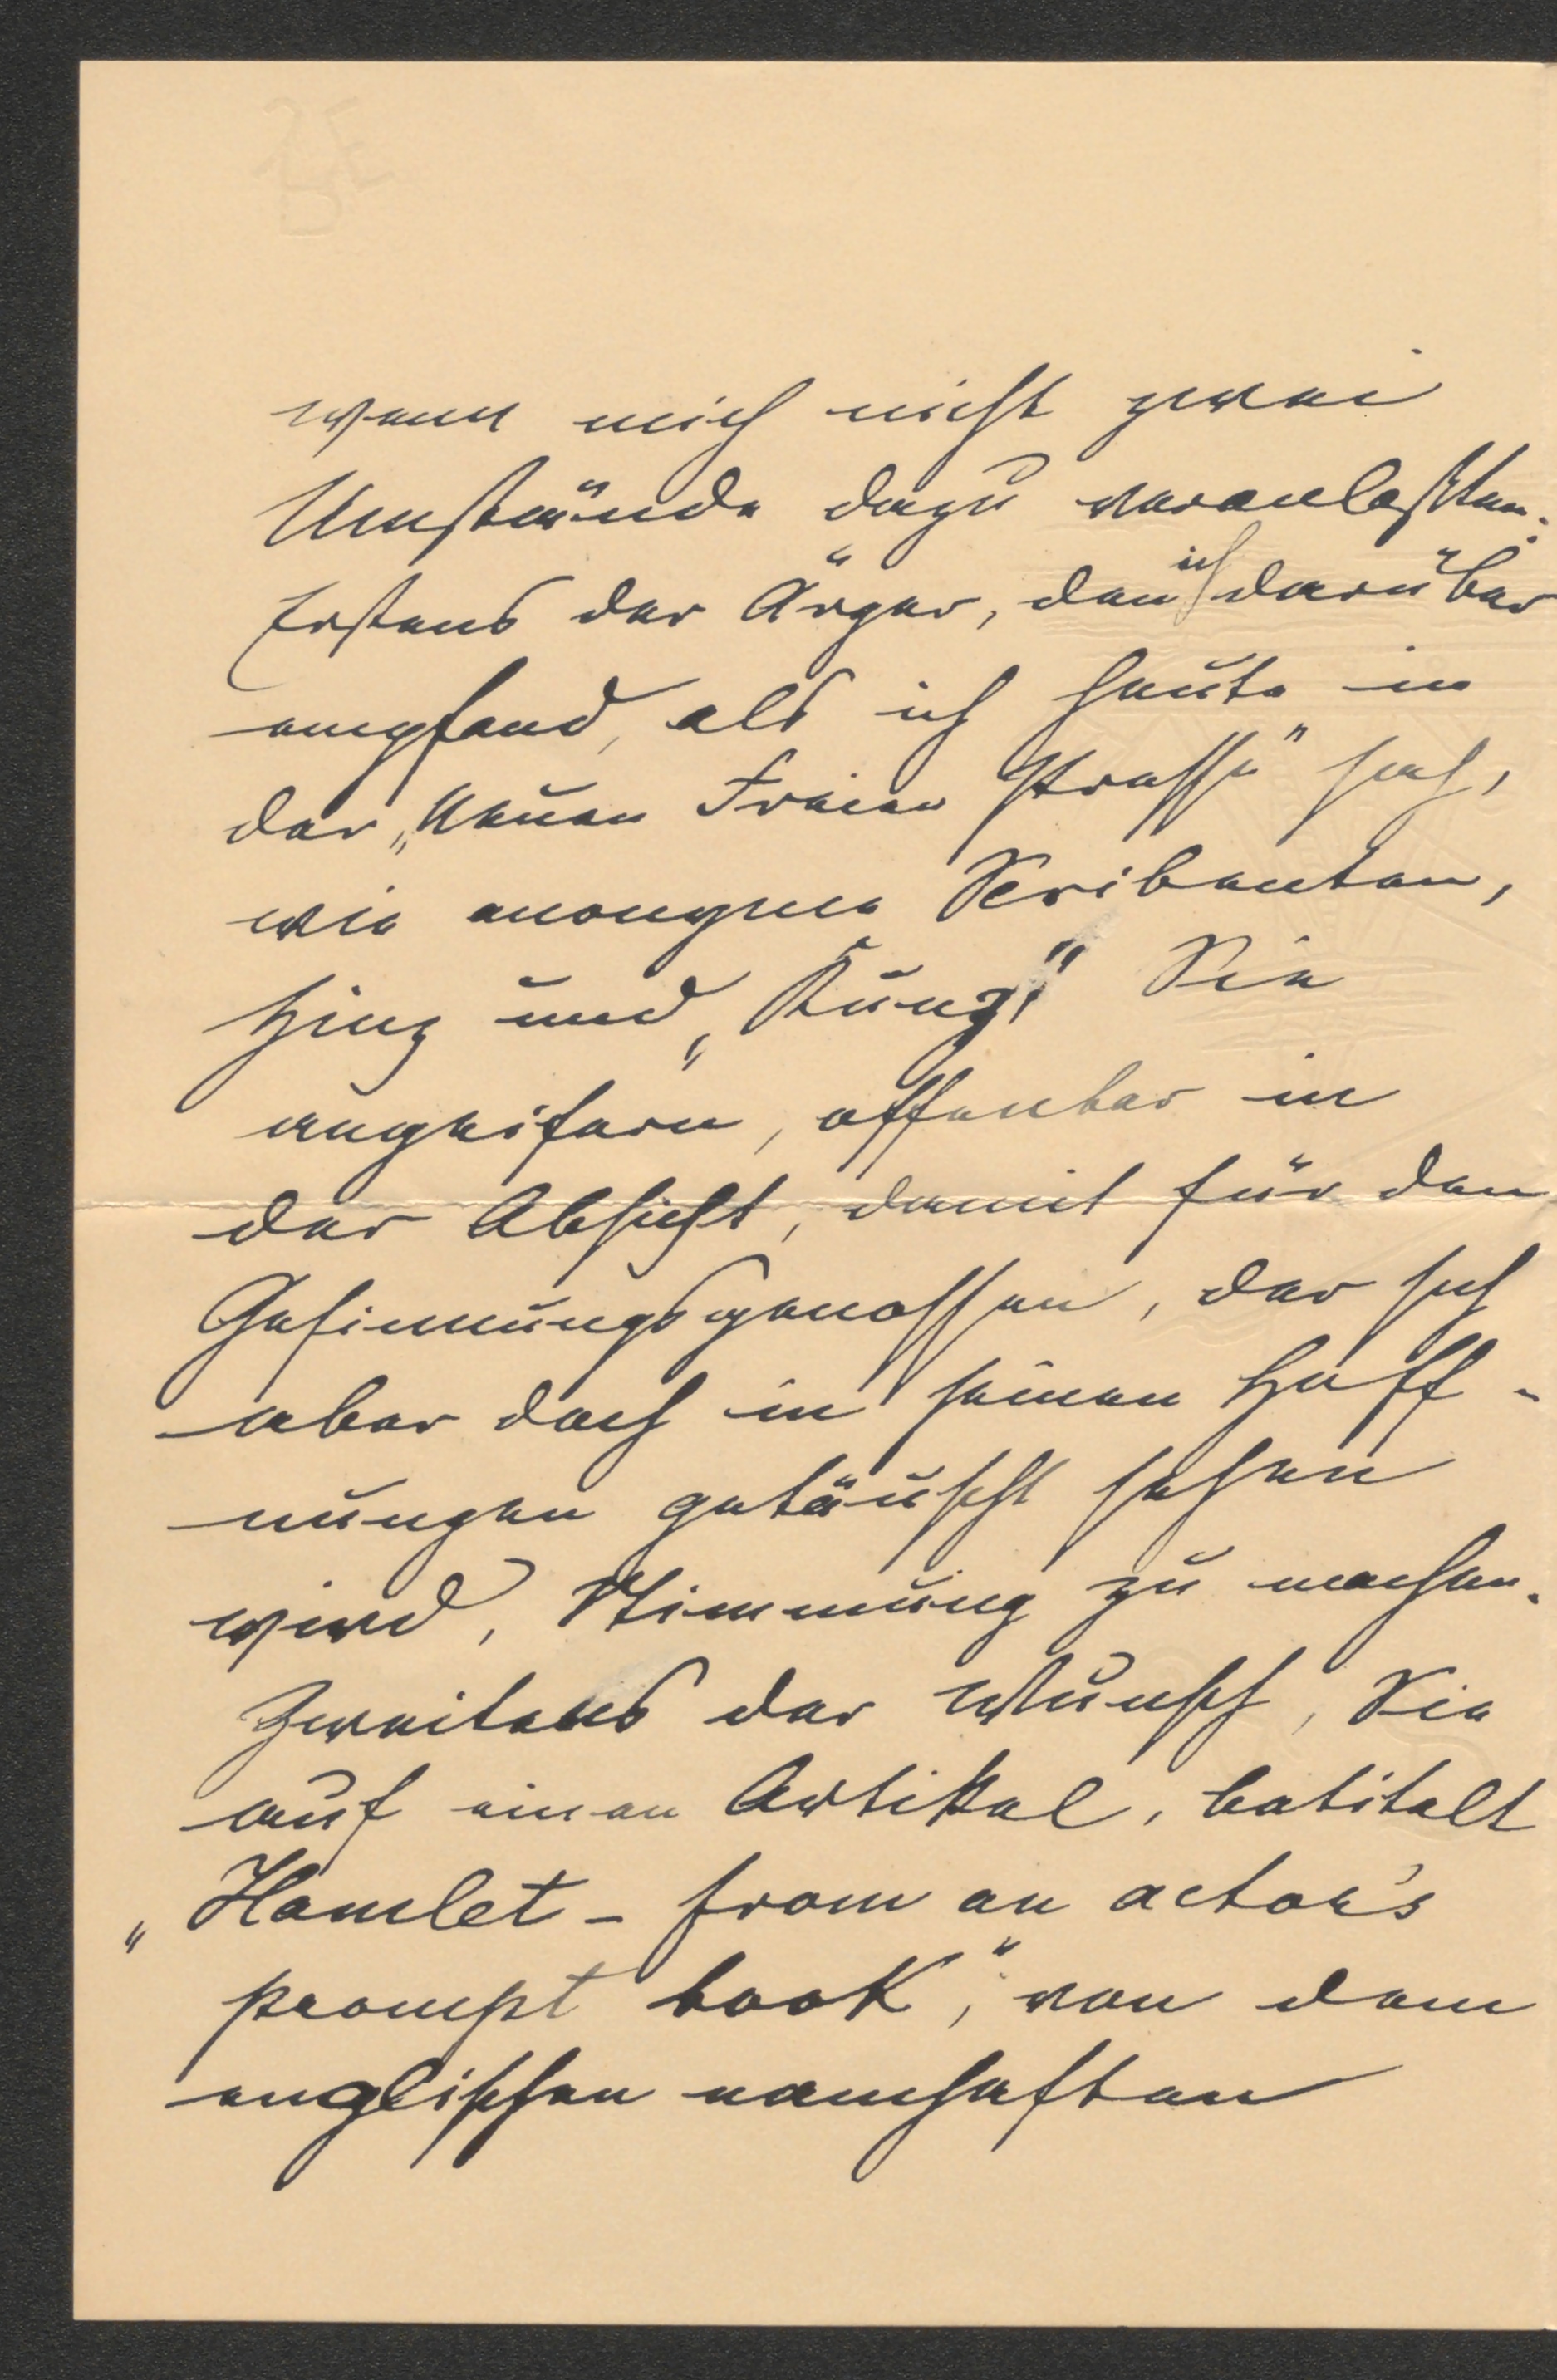 wenn mich nicht zwei
Umstände dazu veranlaßten.
Erstens der Ärger, den ich darüber
empfand, als ich heute in
der „Neuen Freien Presse" sah,
wie anonyme Scribenten,
Hinz und „Kunz" Sie
angeifern, offenbar in
der Absicht, damit für den
Gesinnungsgenossen, der sich
aber doch in seinen Hoff-
nungen getäuscht sehen
wird, Stimmung zu machen.
Zweitens der Wunsch, Sie
auf einen Artikel, betitelt
„Hamlet - from an actor's
prompt book", von dem
englischen namhaften